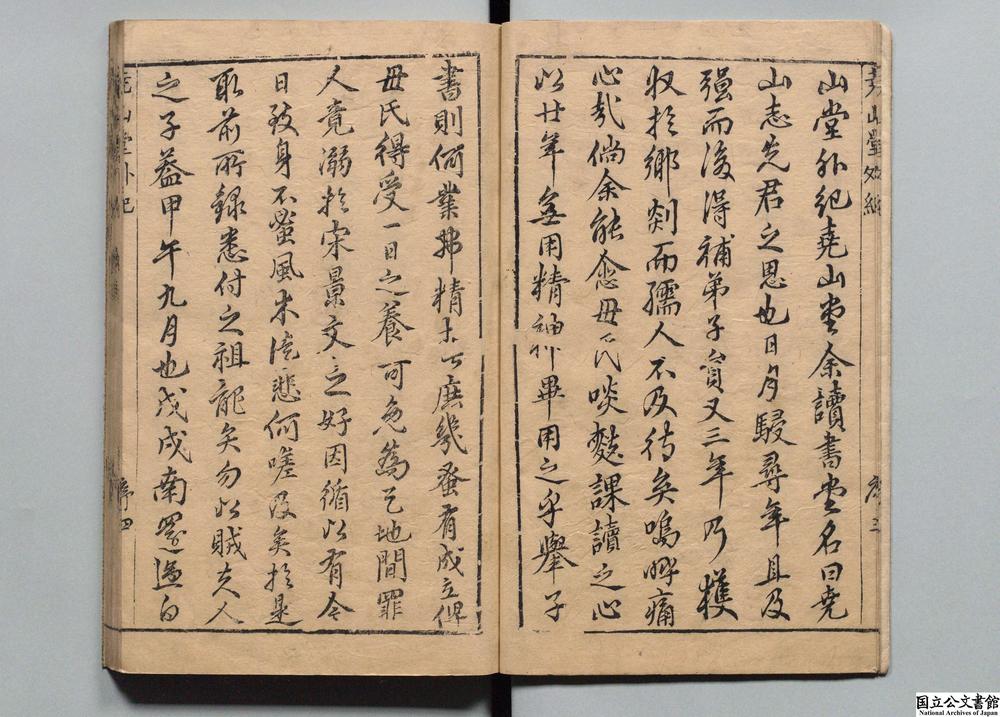 山堂外紀堯山堂余讀書堂名曰堯
山志先君之思也日月駸尋年且及
強而後得補弟子員又三年乃獲
收於鄉剡而孺人不及待矣嗚呼痛
心哉倘余能愈毋氏啖麨課讀之心
以廿年無用精神畢用之乎舉子
書則何業弗精庶幾蚤有成立俾
毋氏得受一日之養可免為天地間罪
人竟溺於宋景文之好因循以有今
日致身不蚤風木結悲何嗟及矣於是
取前所錄悉付之祖龍矣勿以賊夫人
之子蓋甲午九月也戊戌南還過白
堯山堂外紀
序三
堯山堂外紀
序四
国立公文書館
National Archives of Japan